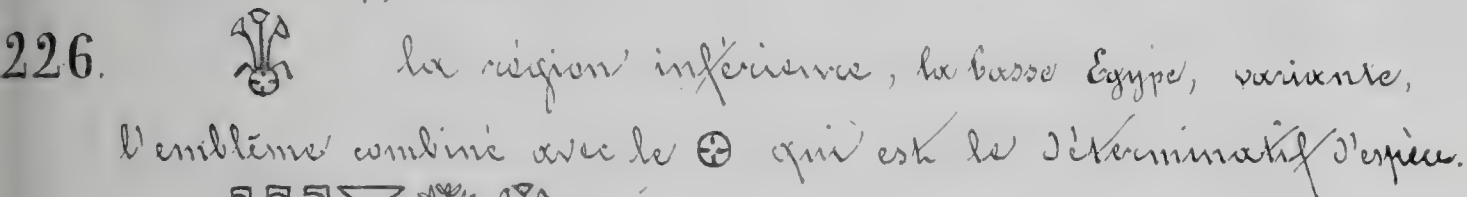 226. la région inférieure, la basse Égypte, variante,
l'emblême combiné avec le qui est le déterminatif d'espèce.